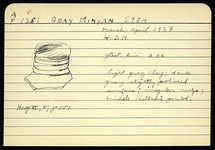 A
P 1351 GRAY MINYAN STEM
V
March-April 1934
H.D.H.
gtest dim. 0.06
light gray clay; dark
gray slightly polished
surface; irregular rings;
middle helladic period.